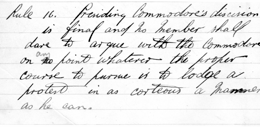 Rule 16. Presiding Commodore's discision
is final and no member shall
dare to argue with the Commodore
on any point whatever the proper
course to pursue is to lodge a
protest in as corteous a manner
as he can.